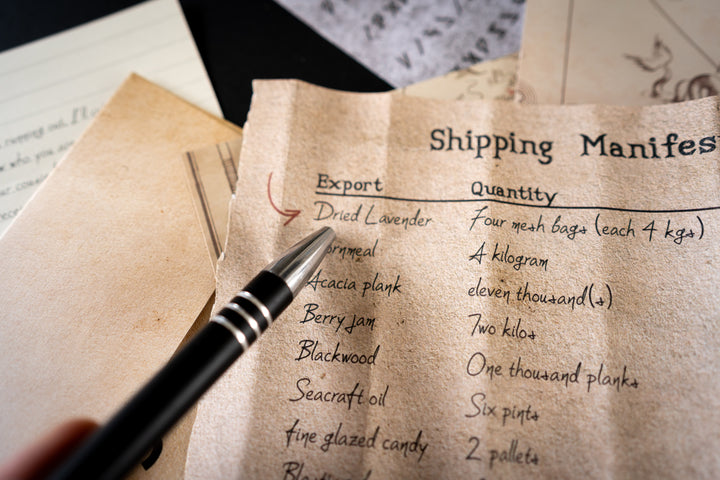 Shipping Manifes
Export Quantity
Dried Lavender Four mesh bags (each 4 kgs)
ornmeal A kilogram
Acacia plank eleven thousand(s)
Berry jam Two kilos
Blackwood One thousand planks
Seacraft oil Six pints
fine glazed candy 2 pallets
running out. I'll
who you